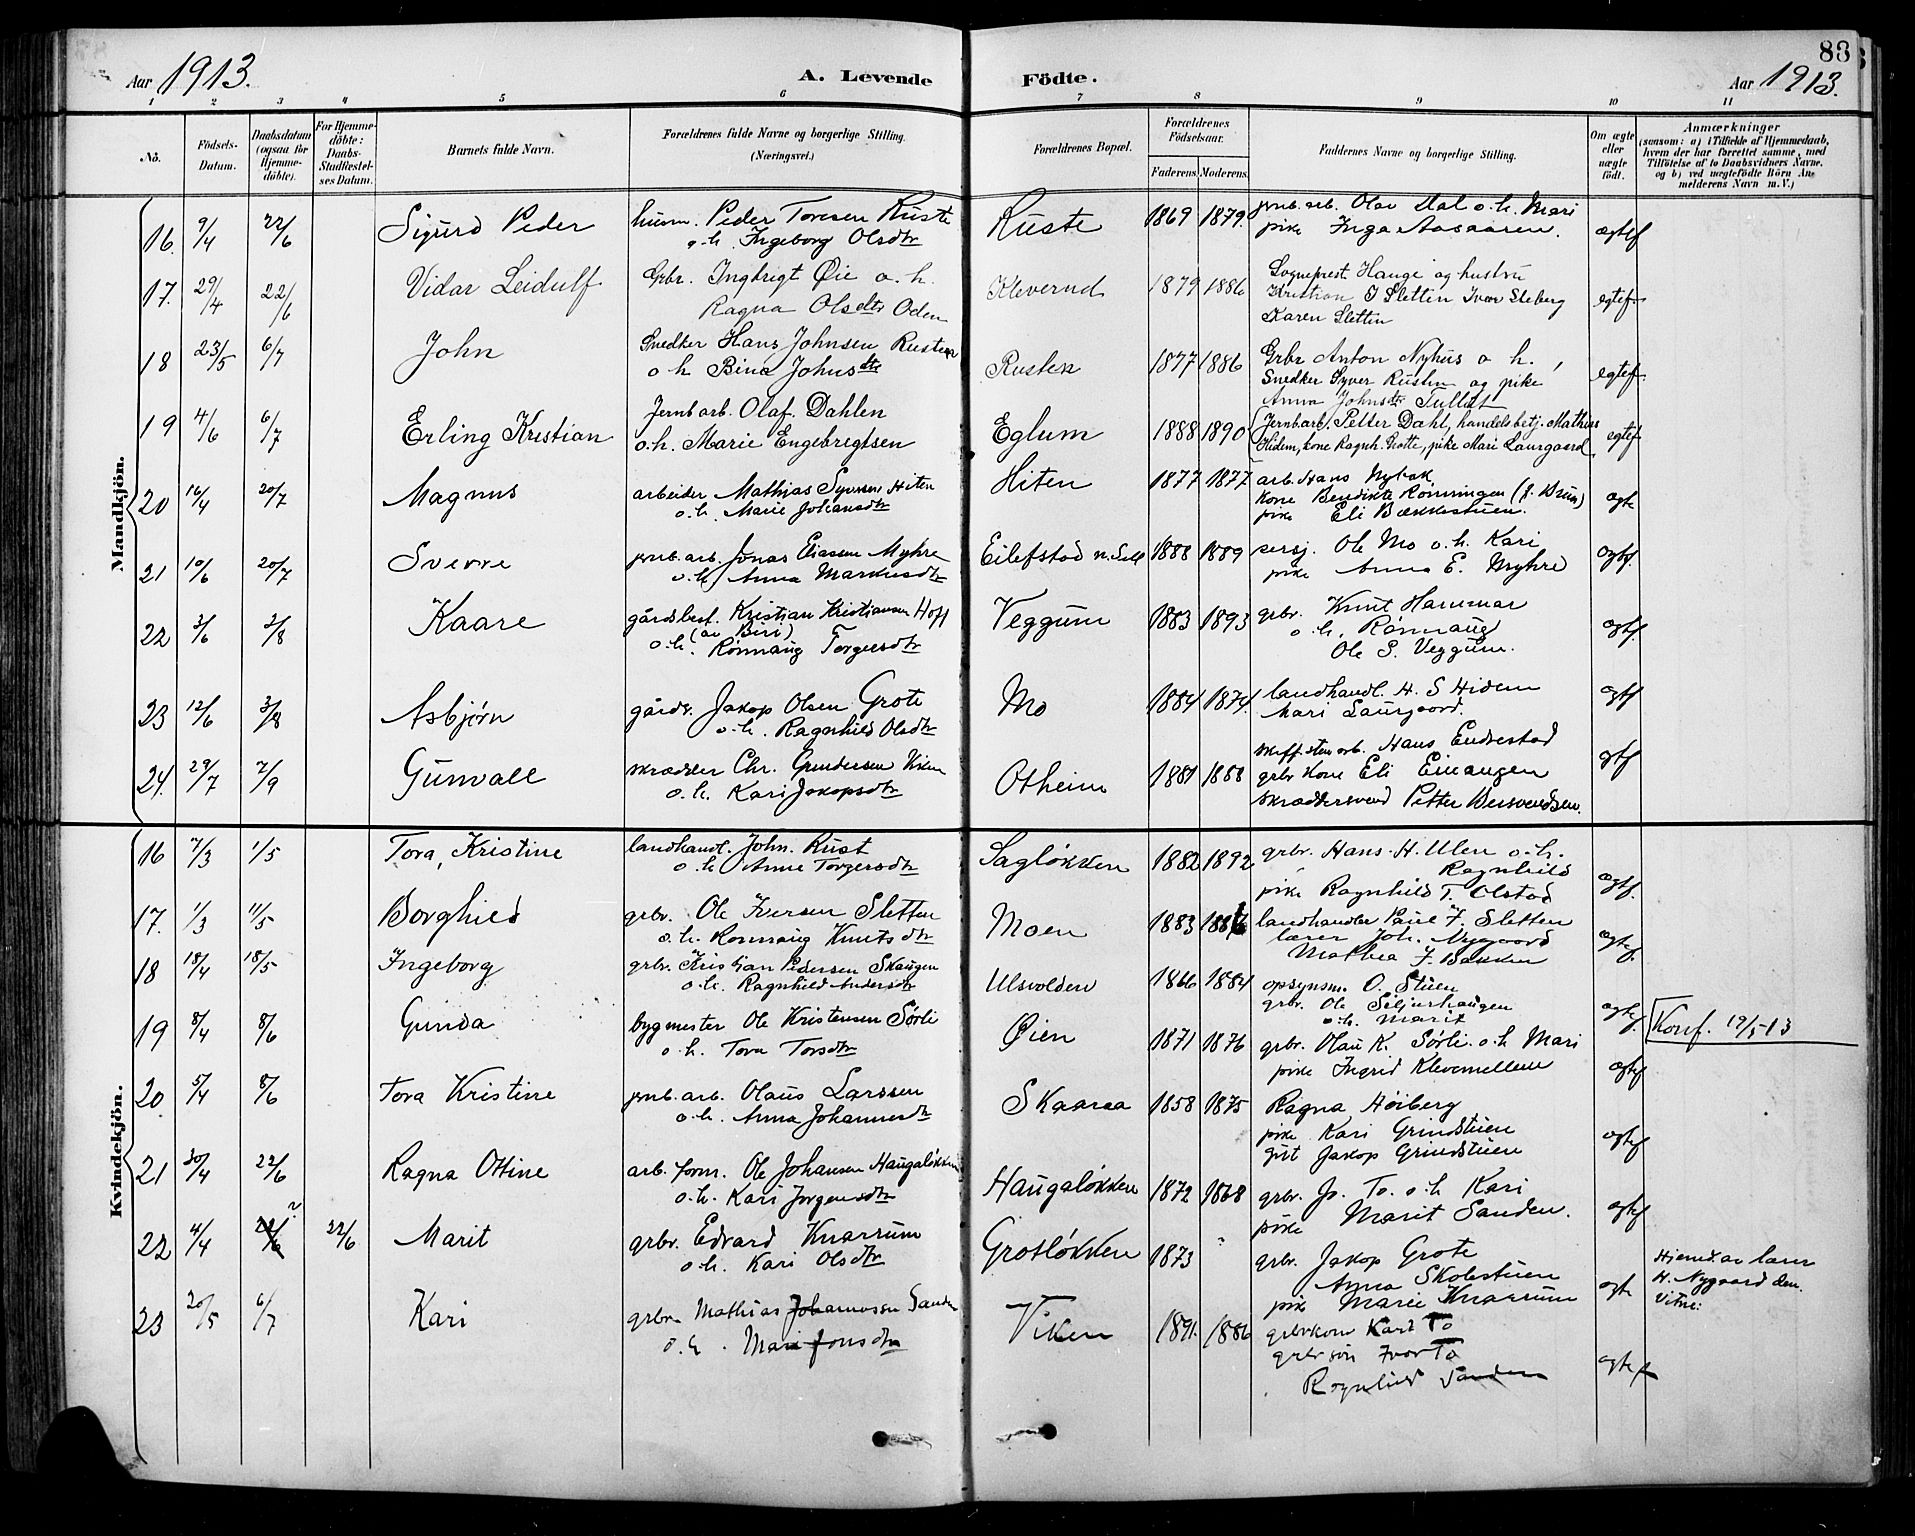 88
Aar 1913.
A. Levende
Födte.
Aar 1913.
1 2 3 4 5 6 7 8 9 10 11
No.
Födsels-Datum.
Daabsdatum (ogsaa for Hjemmedöbte).
For Hjemmedöbte: Daabs-Stadfæstelses Datum.
Barnets fulde Navn.
Forældrenes fulde Navne og borgerlige Stilling. (Næringsvei.)
Forældrenes Bopæl.
Forældrenes Födselsaar.
Faderens. Moderens.
Faddernes Navne og borgerlige Stilling.
Om ægte eller uægte födt.
Anmærkninger
(saasom: a) i Tilfælde af Hjemmedaab, hvem der har forrettet samme, med Tilföielse af to Daabsvidners Navne, og b) ved uægtefödte Börn Anmelderens Navn m. V.)
Mandkjön.
16. 9/4 22/6 Sigurd Peder husm. Peder Toresen Ruste Ruste 1869 1879. jrnb. arb. Olav Dal o. h. Mari ægtef
o. h. Ingeborg Olsdtr pike Inga Aasaaren.
17. 29/4 22/6 Vidar Leidulf Grbr. Ingbrigt Øie o. h. Kleverud 1879 1886 Sogneprest Hauge og hustru egtef.
Ragna Olsdtr Oden Kristian J Sletten Ivar Sleberg
Karen Sletten
18 23/5 6/7 John Snedker Hans Johnsen Rusten Rusten 1877 1886 Grbr Anton Nyhus o h. egtef.
o h Bina Johnsdtr Snedker Syver Rusten og pike
Anna Johnsdtr
19 4/6 6/7 Erling Kristian Jernb arb. Olaf Dahlen Eglum 1888 1890 Jernbarb. Petter Dahl, handelsbetj. Mathias egtef
o. h. Marie Engebregtsen Hidem, kone Ragnh. Grotte, pike Mari Laurgaard.
20 16/4 20/7 Magnus arbeider Mathias Syversen Hiten Hiten 1877 1877 arb. Hans Nybak ægte
o. h. Marie Johansdtr kone Bendikte Rønningen
pike Eli Bækkestuen.
21 10/6 20/7 Sverre jrnb. arb. Jonas Eliasen Myhre Eilefstad n. Sell 1888 1889 sersj. Ole Mo o. h. Kari ægtef.
o. h. Anna Markusdtr pike Anna E. Myhre
22 3/6 3/8 Kaare gårdsbest. Kristian Kristiansen Hoff Veggum 1883 1893 grbr. Knut Hammar ægtf.
(av Biri) o. h. Rønnaug
o. h. Rønnaug Torgersdtr Ole S. Veggum.
23 12/6 3/8 Asbjørn gårdr. Jakop Olsen Grote Mo 1884 1874. landhandl. H. S Hidem ægtf
o. h. Ragnhild Olsdtr Mari Laurgaard.
24. 29/7 7/9 Gunvall skrædder Chr. Gundersen Otheim 1881 1888 Hans Endrestad ægtf
o. h. Kari Jakopsdtr grbr kone Eli Einangen
skræddersvend Petter Bersvendsen.
Kvindekjön.
16 7/3 1/5 Tora, Kristine landhandl. John. Rust Sagløkken 1882 1892 grbr. Hans. H. Ulen o. h. ægtf.
o. h Anne Torgersdtr Ragnhild
pike Ragnhild T. Olstad
17. 1/3 11/5 Borghild grbr. Ole Iversen Sletten Moen 1883 1886 landhandler Paul I. Sletten ægtef.
o. h. Rønnaug Knutsdtr lærer Joh. Nygaard
Mathea I. Bakken
18 18/4 18/5 Ingeborg grbr. Kristian Pedersen Skaugen Ulsvolden 1866 1884 opsynsm. O. Stuen ægtef.
o. h. Ragnhild Andersdtr grbr. Ole Siljushaugen
o. h. Marit
Konf. 19/5-13
19 8/4 8/6 Gunda bygmester Ole Kristensen Sørli Øien 1871 1876 grbr. Olau K. Sørli o. h Mari ægtef
o. h. Tora Torsdtr pike Ingrid Klevmellem
20 5/4 8/6 Tora Kristine jrnb. arb. Olaus Larssen Skaaraa 1858 1875 Ragna Høiberg ægtef
o. h. Anna Johannesdtr pike Kari Grindstuen
gut Jakop Grindstuen
21 30/4 22/6 Ragna Ottine arb. form. Ole Johansen Haugaløkken Haugaløkken 1872 1868 grbr. Jo. To. o. h Kari ægtef
o. h. Kari Jørgensdtr pike Marit Sanden.
22 4/4 22/6 ? 22/6 Marit grbr. Edvard Knarrum Grotløkken 1873 grbr. Jakop Grote ægte
o. h. Kari Olsdtr Anna Skolestuen
pike Marie Knarrum
Hjemd. av lærer
H. Nygaard den.
Vitne:
23 20/5 6/7 Kari grbr. Mathias Johannessen Sanden Viken 1891. 1886 grbrkone Kari To ægtef
o. h. Mari Jonsdtr grbr søn Ivar To
Ragnhild Sanden